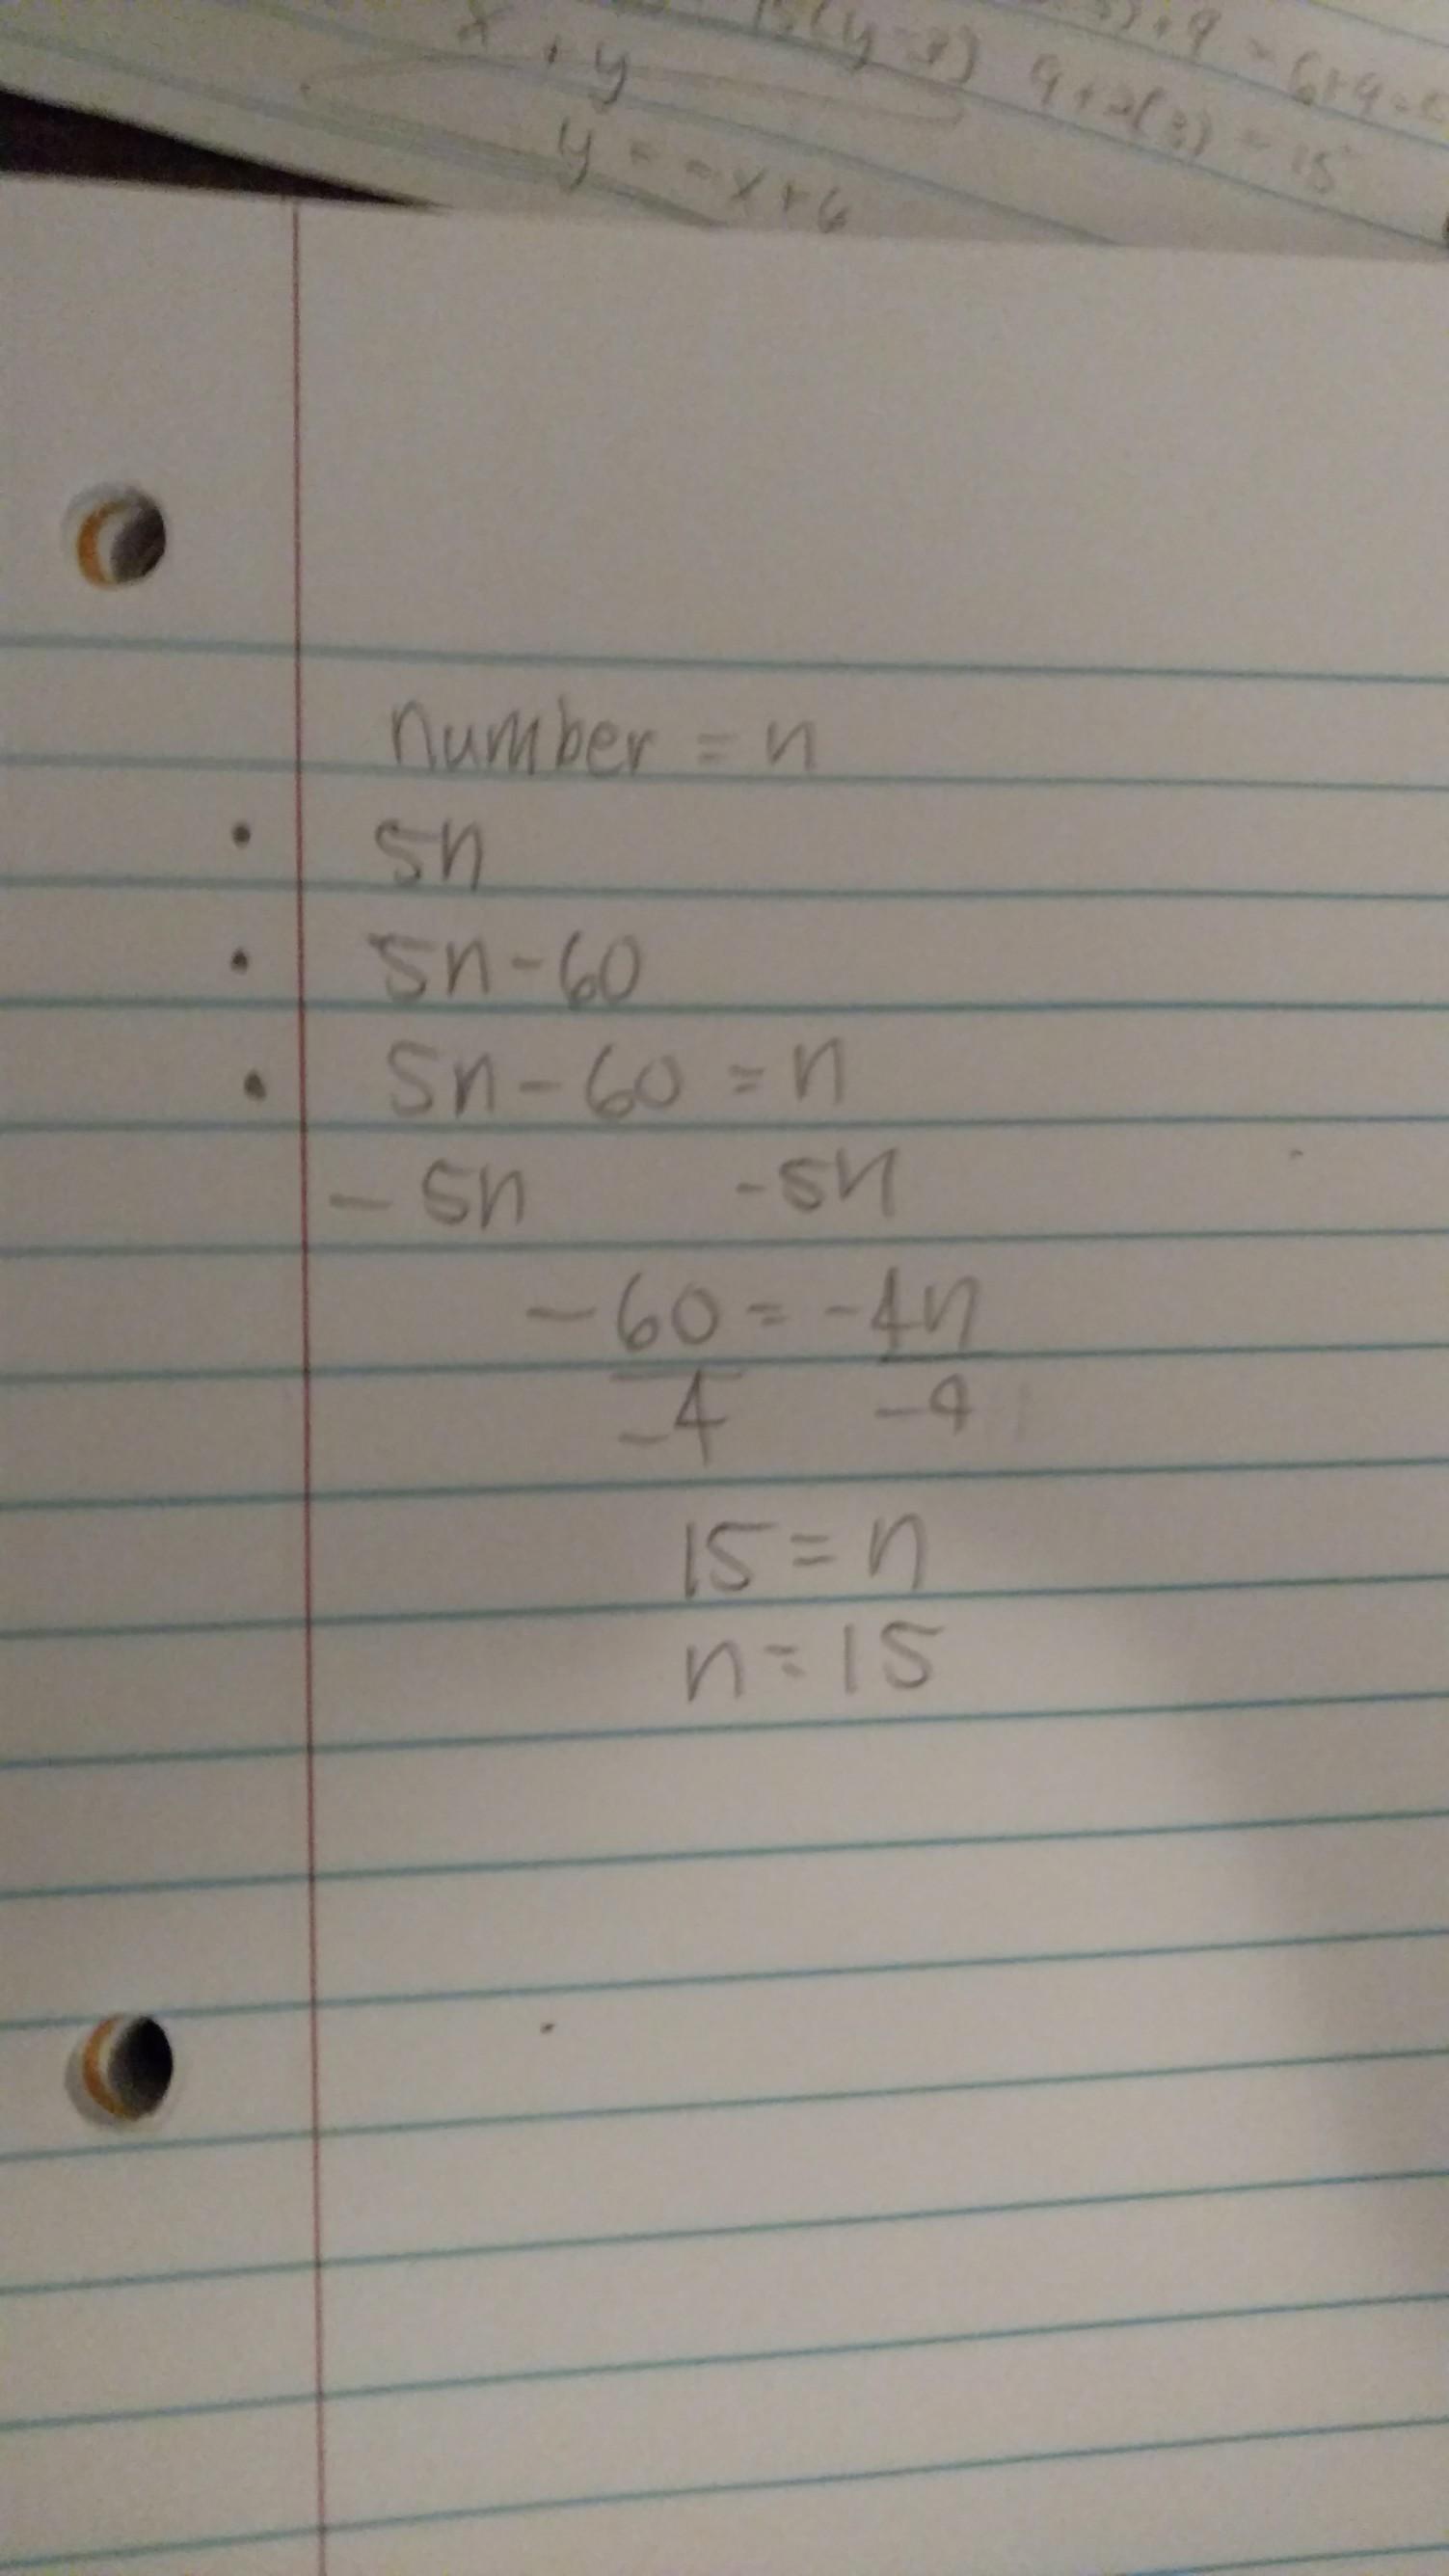 x + y
(y-7)
9+2(3) = 15
y = -x+6
number = n
• 5n
• 5n-60
• 5n-60 = n
-5n -5n
-60 = -4n
-4 -4
15 = n
n = 15